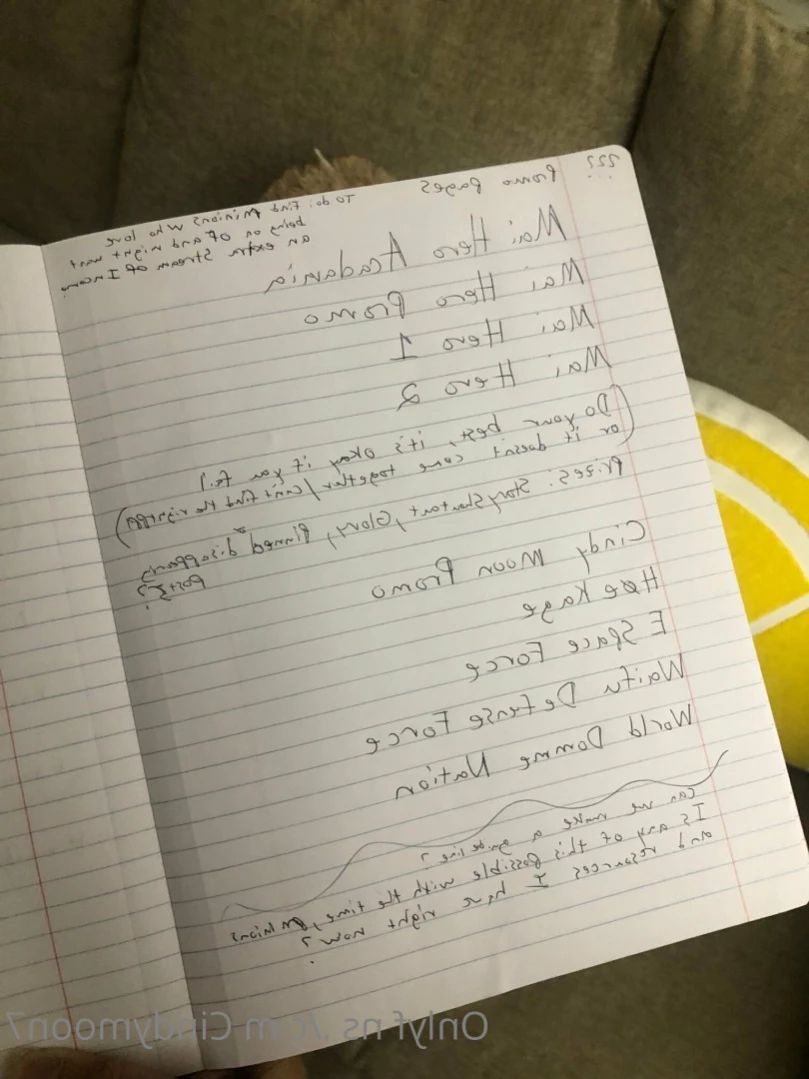 ???
Promo Pages
To do: find Minions who love
being on OF and might want
an extra stream of Income
Mai Hero Acadamia
Mai Hero Promo
Mai Hero 1
Mai Hero 2
(Do your best, it's okay if you fail
or it doesn't come together/can't find the right )
Prizes: Story Shoutout, Glory, Pinned disappearing
Posts??
Cindy Moon Promo
Hoe Kage
E Space Force
Waifu Defense Force
World Domme Nation
Can we make a guideline?
Is any of this possible with the time, minions
and resources I have right now?
Onlyf ns. Cindymoon7